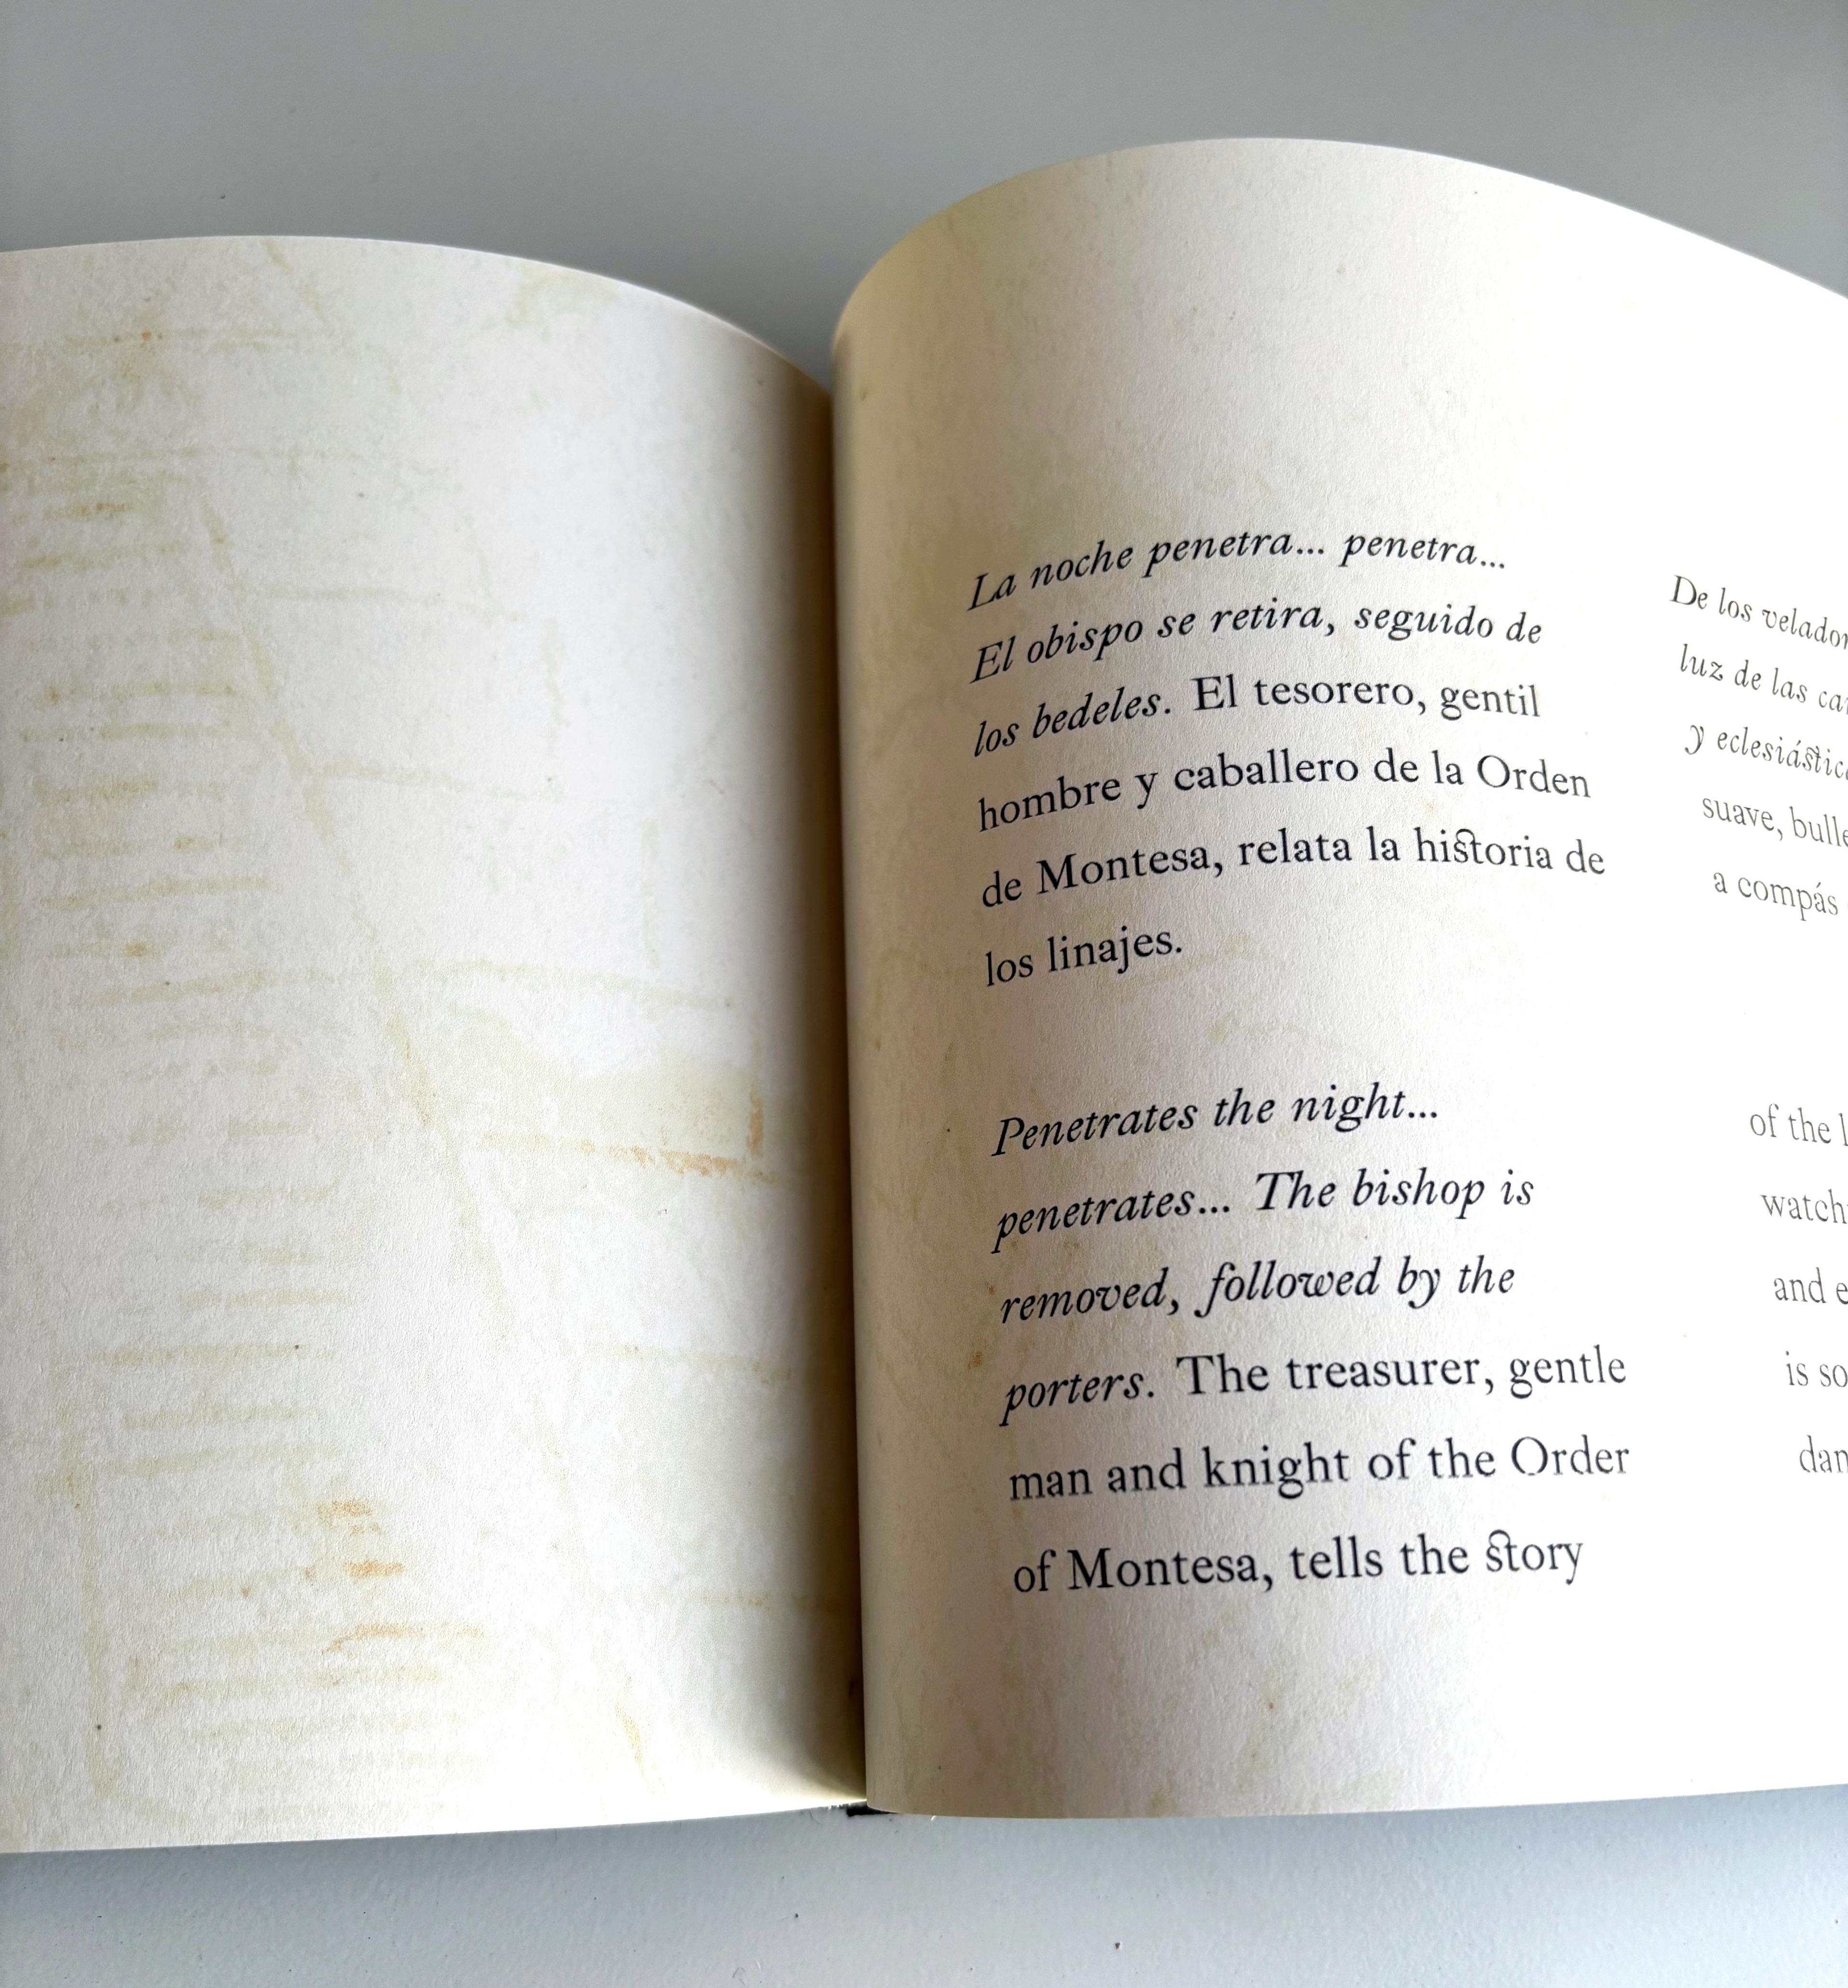 La noche penetra... penetra...
El obispo se retira, seguido de
los bedeles. El tesorero, gentil
hombre y caballero de la Orden
de Montesa, relata la historia de
los linajes.
Penetrates the night...
penetrates... The bishop is
removed, followed by the
porters. The treasurer, gentle
man and knight of the Order
of Montesa, tells the story
De los
luz de las
y
suave,
a compás
of the
and
is